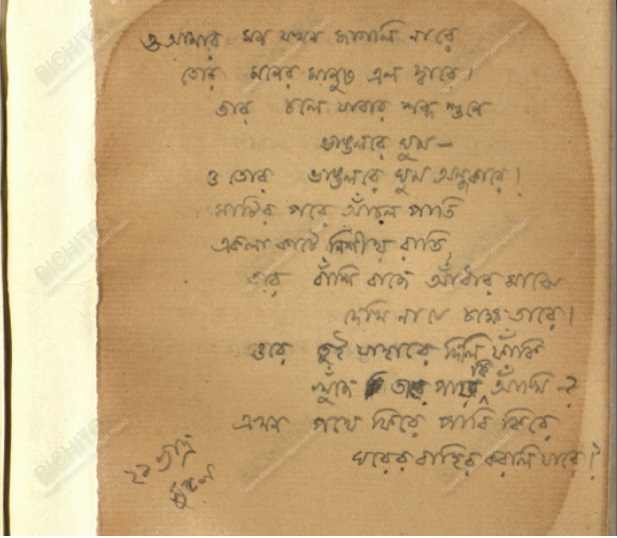 ও আমার মন যখন জাগলি নারে
তোর মনের মানুষ এল দ্বারে।
তার চলে যাবার শব্দ শুনে
ভাঙলরে ঘুম—
ও তোর ভাঙলরে ঘুম অন্ধকারে!
মাটির পরে আঁচল পাতি
একলা কাটে নিশীথ রাতি,
তার বাঁশি বাজে আঁধার মাঝে
দেখি নাযে চক্ষে তারে।
ওরে তুই যাহারে দিলি ফাঁকি
খুঁজে তারে পায় কি আঁখি—?
এখন পথে ফিরে পাবি কিরে
ঘরের বাহির করলি যারে?
২১ ভাদ্র
সুরুল
BICHITRA